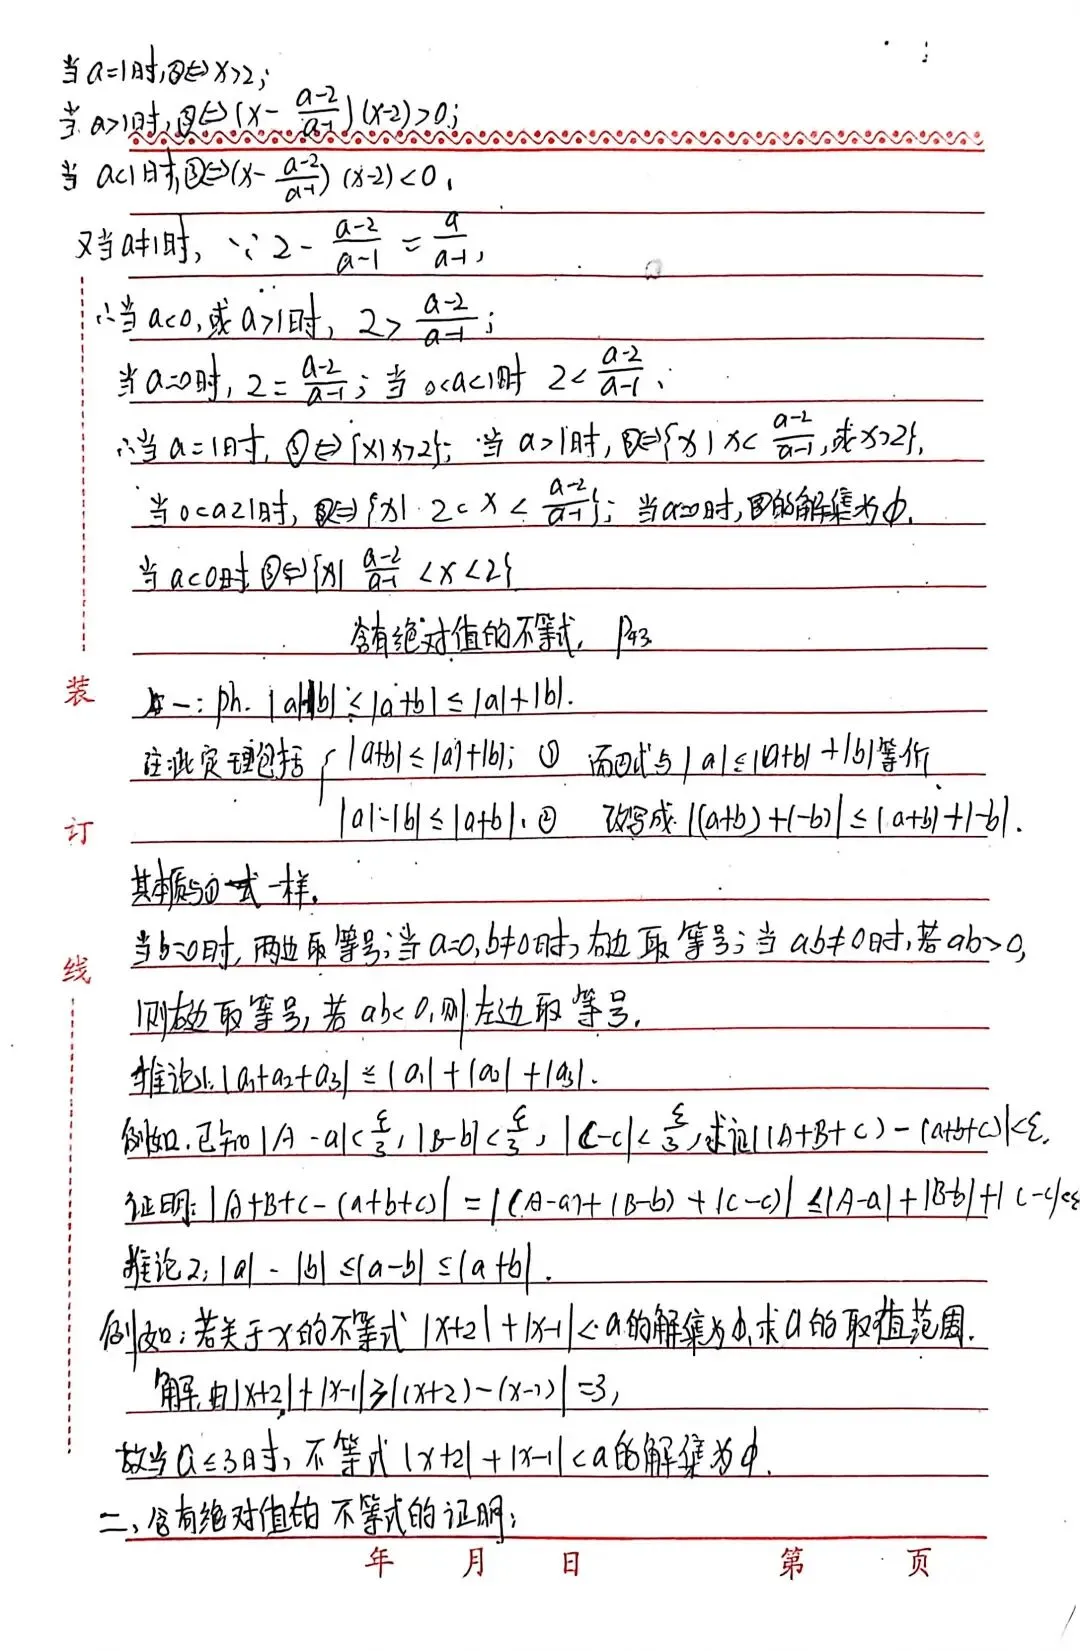 当a=1时,③⇔x>2;
当a>1时,③⇔(x-\frac{a-2}{a-1})(x-2)>0;
当a<1时,③⇔(x-\frac{a-2}{a-1})(x-2)<0.
又当a≠1时, ∵2-\frac{a-2}{a-1}=\frac{a}{a-1},
∴当a<0,或a>1时, 2>\frac{a-2}{a-1};
当a=0时, 2=\frac{a-2}{a-1}; 当0<a<1时 2<\frac{a-2}{a-1}.
∴当a=1时, ③⇔{x|x>2}; 当a>1时, ③⇔{x|x<\frac{a-2}{a-1},或x>2},
当0<a<1时, ③⇔{x|2<x<\frac{a-2}{a-1}}; 当a=0时, ③的解集为φ.
当a<0时③⇔{x|\frac{a-2}{a-1}<x<2}
含有绝对值的不等式. P43
一: ph. |a|-|b|≤|a+b|≤|a|+|b|.
注:此定理包括{|a+b|≤|a|+|b|; ① 而②式与|a|≤|a+b|+|b|等价
|a|-|b|≤|a+b|. ② 改写成:|(a+b)+(-b)|≤|a+b|+|-b|.
装
订
线
其本质与①式一样.
当b=0时,两边取等号;当a=0,b≠0时,右边取等号;当ab≠0时,若ab>0,
则右边取等号,若ab<0,则左边取等号.
推论1:|a1+a2+a3|≤|a1|+|a2|+|a3|.
例如.已知|A-a|<\frac{ε}{3},|B-b|<\frac{ε}{3},|C-c|<\frac{ε}{3},求证|(A+B+C)-(a+b+c)|<ε.
证明:|A+B+C-(a+b+c)|=|(A-a)+(B-b)+(C-c)|≤|A-a|+|B-b|+|C-c|<ε
推论2:|a|-|b|≤|a-b|≤|a+b|.
例如:若关于x的不等式|x+2|+|x-1|<a的解集为φ,求a的取值范围.
解.由|x+2|+|x-1|≥|(x+2)-(x-1)|=3,
故当a≤3时,不等式|x+2|+|x-1|<a的解集为φ.
二、含有绝对值的不等式的证明:
年 月 日 第 页